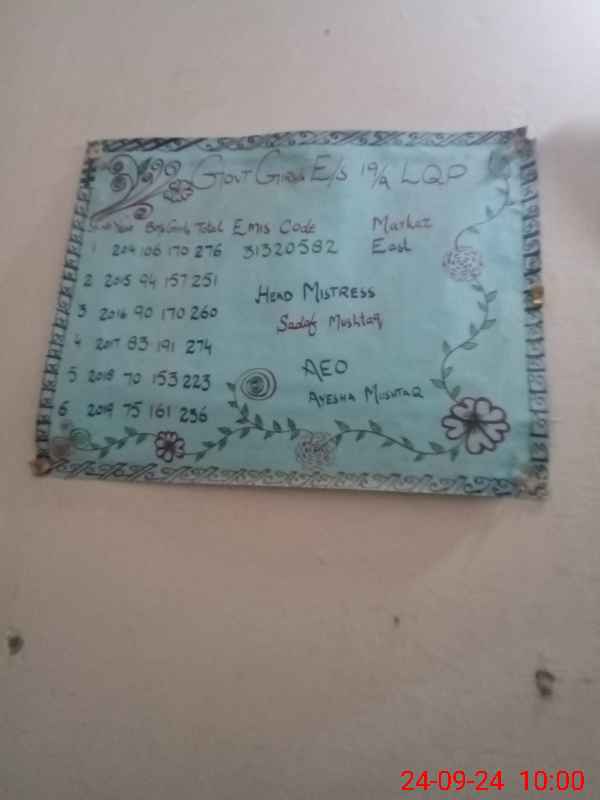 Govt Girls E/S 19/2 LQP
Year Boys Girls Total EMIS Code Markaz
1 2014 106 170 276 31320582 East
2 2015 94 157 251
3 2016 90 170 260
4 2017 83 191 274
5 2018 70 153 223
6 2019 75 161 236
Head Mistress
Sadaf Mushtaq
AEO
Ayesha Mushtaq
24-09-24 10:00